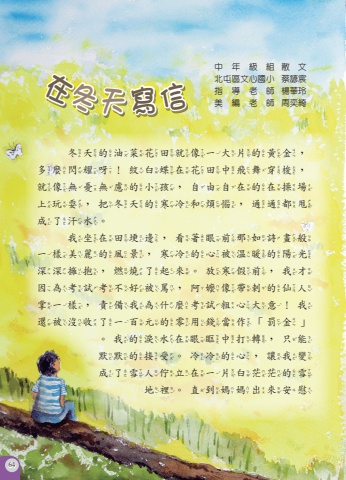 在冬天寫信
中年級組散文
北屯區文心國小 蔡諺宸
指導老師 楊華玲
美編老師 周奕綺
冬天的油菜花田就像一大片的黃金，
多麼閃耀呀！紋白蝶在花田中飛舞穿梭，
就像無憂無慮的小孩，自由自在的在操場
上玩耍，把冬天的寒冷和煩惱，通通都甩
成了汗水。
我坐在田埂邊，看著眼前那如詩畫般
一樣美麗的風景，寒冷的心被溫暖的陽光
深深擁抱，燃燒了起來。放寒假前，我才
因為考試考不好被罵，阿嬤像帶刺的仙人
掌一樣，責備我為什麼考試粗心大意！我
還被沒收了一百元的零用錢當作「罰金」
。我的淚水在眼眶中打轉，只能
默默的接受。冷冷的心，讓我變
成了雪人佇立在一片白茫茫的雪
地裡。直到媽媽出來安慰
64